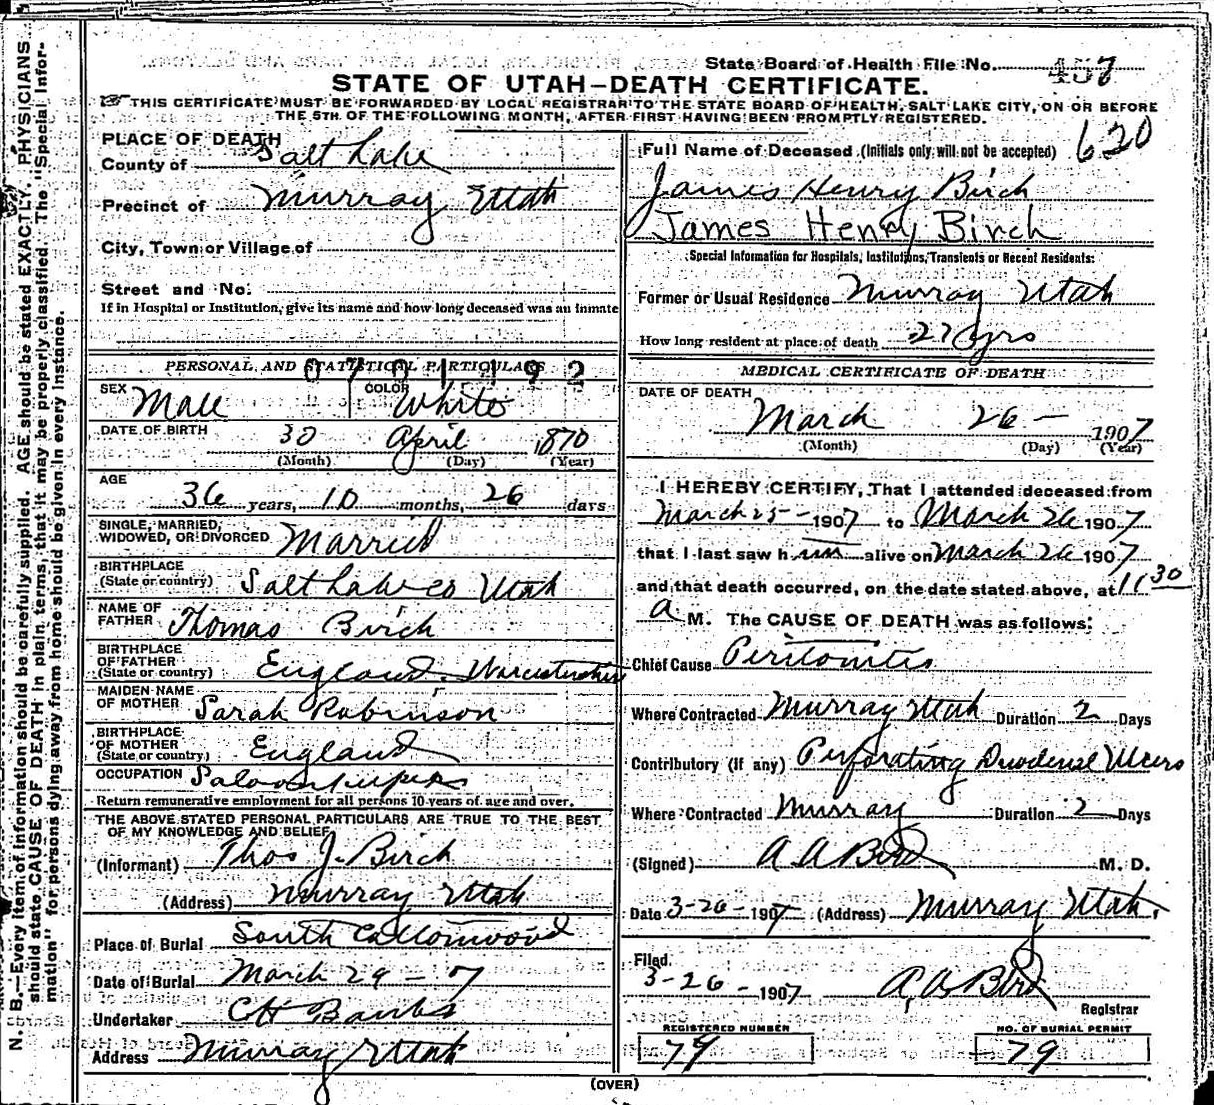 State Board of Health File No. 457
STATE OF UTAH—DEATH CERTIFICATE.
THIS CERTIFICATE MUST BE FORWARDED BY LOCAL REGISTRAR TO THE STATE BOARD OF HEALTH, SALT LAKE CITY, ON OR BEFORE
THE 5TH OF THE FOLLOWING MONTH, AFTER FIRST HAVING BEEN PROMPTLY REGISTERED.
PLACE OF DEATH
County of Salt Lake
Precinct of Murray Utah
City, Town or Village of
Street and No.
If in Hospital or Institution, give its name and how long deceased was an inmate
PERSONAL AND STATISTICAL PARTICULARS
0701192
SEX Male COLOR White
DATE OF BIRTH 30 April 1870
(Month) (Day) (Year)
AGE
36 years, 10 months, 26 days
SINGLE, MARRIED,
WIDOWED, OR DIVORCED Married
BIRTHPLACE
(State or country) Salt Lake co Utah
NAME OF
FATHER Thomas Birch
BIRTHPLACE
OF FATHER
(State or country) England Worcestershire
MAIDEN NAME
OF MOTHER Sarah Robinson
BIRTHPLACE
OF MOTHER
(State or country) England
OCCUPATION Saloonkeeper
Return remunerative employment for all persons 10 years of age and over.
THE ABOVE STATED PERSONAL PARTICULARS ARE TRUE TO THE BEST
OF MY KNOWLEDGE AND BELIEF
(Informant) Thos J. Birch
(Address) Murray Utah
Place of Burial South Cottonwood
Date of Burial March 29 - 7
Undertaker CH Banks
Address Murray Utah
620
Full Name of Deceased (Initials only will not be accepted)
James Henry Birch
James Henry Birch
Special Information for Hospitals, Institutions, Transients or Recent Residents:
Former or Usual Residence Murray Utah
How long resident at place of death yrs
MEDICAL CERTIFICATE OF DEATH
DATE OF DEATH
March 26 — 1907
(Month) (Day) (Year)
I HEREBY CERTIFY, That I attended deceased from
March 25 - 1907 to March 26 1907
that I last saw him alive on March 26 1907
and that death occurred, on the date stated above, at 11 30
a M. The CAUSE OF DEATH was as follows:
Chief Cause Peritonitis
Where Contracted Murray Utah Duration 2 Days
Contributory (if any) Perforating Duodenal Ulcers
Where Contracted Murray Duration 2 Days
(Signed) A A Bird M. D.
Date 3-26-1907 (Address) Murray Utah.
Filed.
3-26-1907 A. A. Bird
Registrar
REGISTERED NUMBER
79
NO. OF BURIAL PERMIT
79
(OVER)
N. B.—Every item of information should be carefully supplied. AGE should be stated EXACTLY. PHYSICIANS
should state CAUSE OF DEATH in plain terms, that it may be properly classified. The "Special Infor-
mation" for persons dying away from home should be given in every instance.